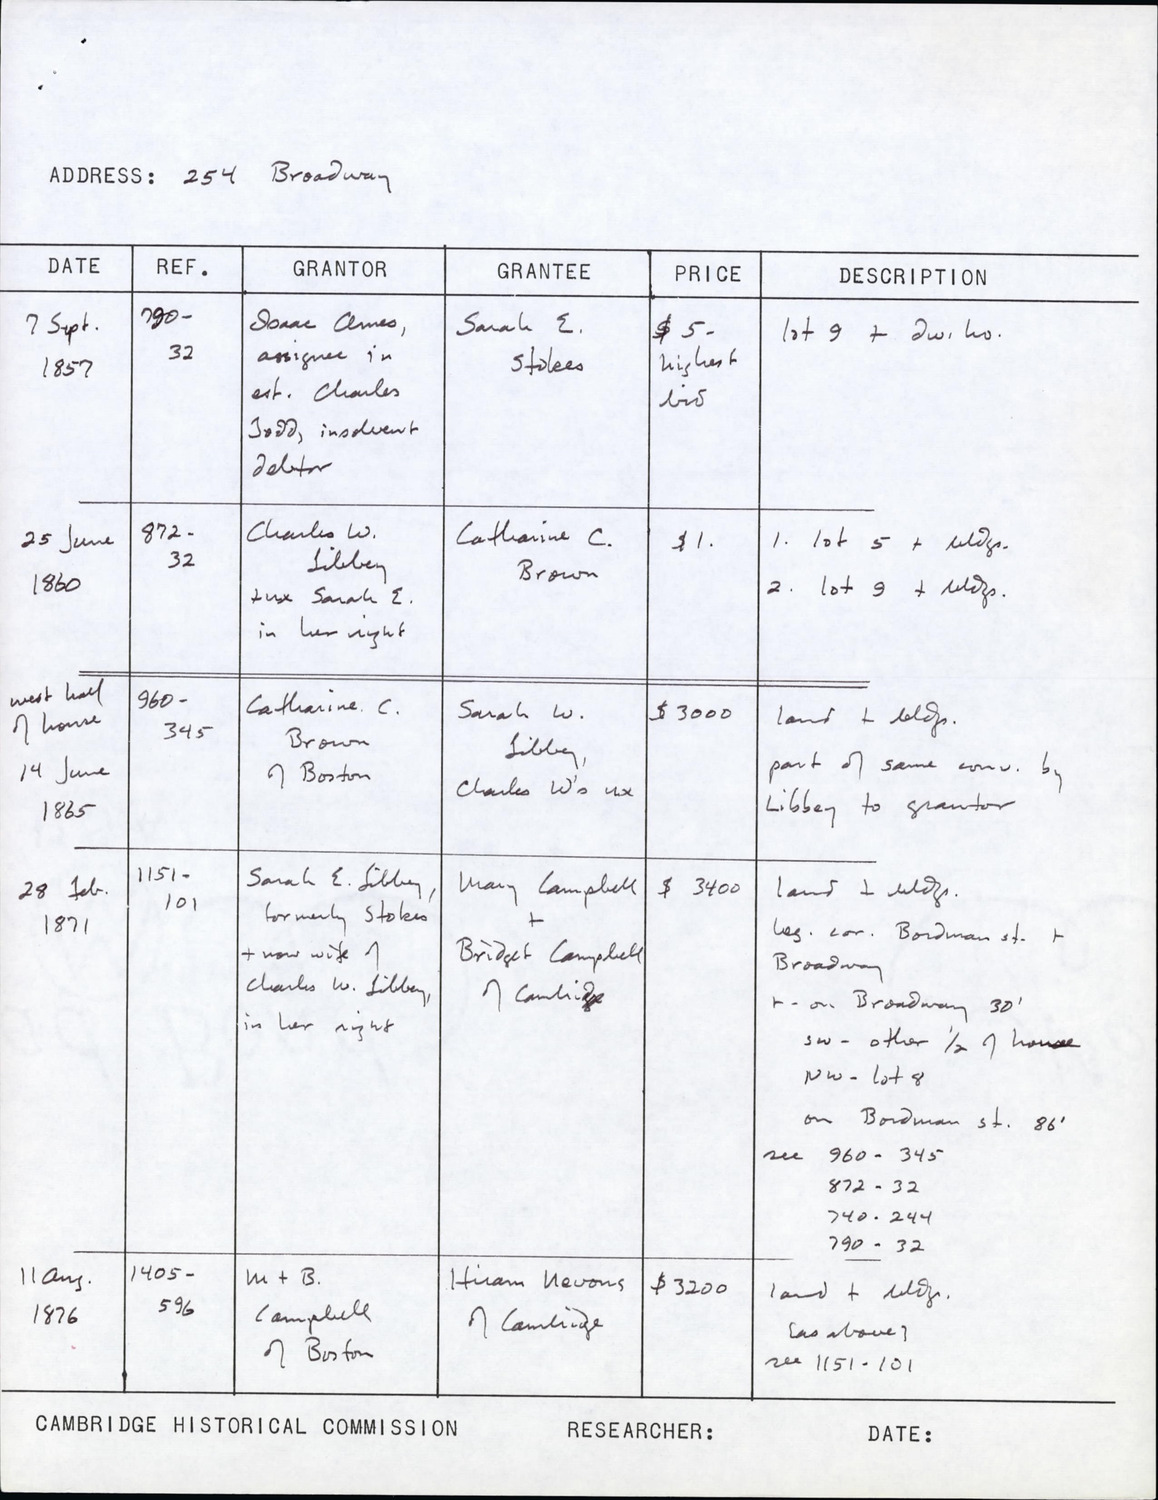 ADDRESS: 254 Broadway
DATE REF. GRANTOR GRANTEE PRICE DESCRIPTION
7 Sept.
1857
790-
32
Isaac Ames,
assignee in
est. Charles
Todd, insolvent
debtor
Sarah E.
Stokes
$ 5-
highest
bid
lot 9 + dw. ho.
25 June
1860
872-
32
Charles W.
Libbey
+ux Sarah E.
in her right
Catharine C.
Brown
$1.
1. lot 5 + bldgs.
2. lot 9 + bldgs.
west half
of house
14 June
1865
960-
345
Catharine C.
Brown
of Boston
Sarah W.
Libbey,
Charles W's ux
$3000
land + bldgs.
part of same conv. by
Libbey to grantor
28 Feb.
1871
1151-
101
Sarah E. Libbey,
formerly Stokes
+ now wife of
Charles W. Libbey,
in her right
Mary Campbell
+
Bridget Campbell
of Cambridge
$ 3400
land + bldgs.
beg. cor. Bordman st. +
Broadway
r - on Broadway 30'
SW - other 1/2 of house
NW - lot 8
on Bordman st. 86'
see 960 - 345
872 - 32
740 - 244
790 - 32
11 Aug.
1876
1405-
596
M + B.
Campbell
of Boston
Hiram Nevons
of Cambridge
$3200
land + bldgs.
[as above]
see 1151-101
CAMBRIDGE HISTORICAL COMMISSION RESEARCHER: DATE: